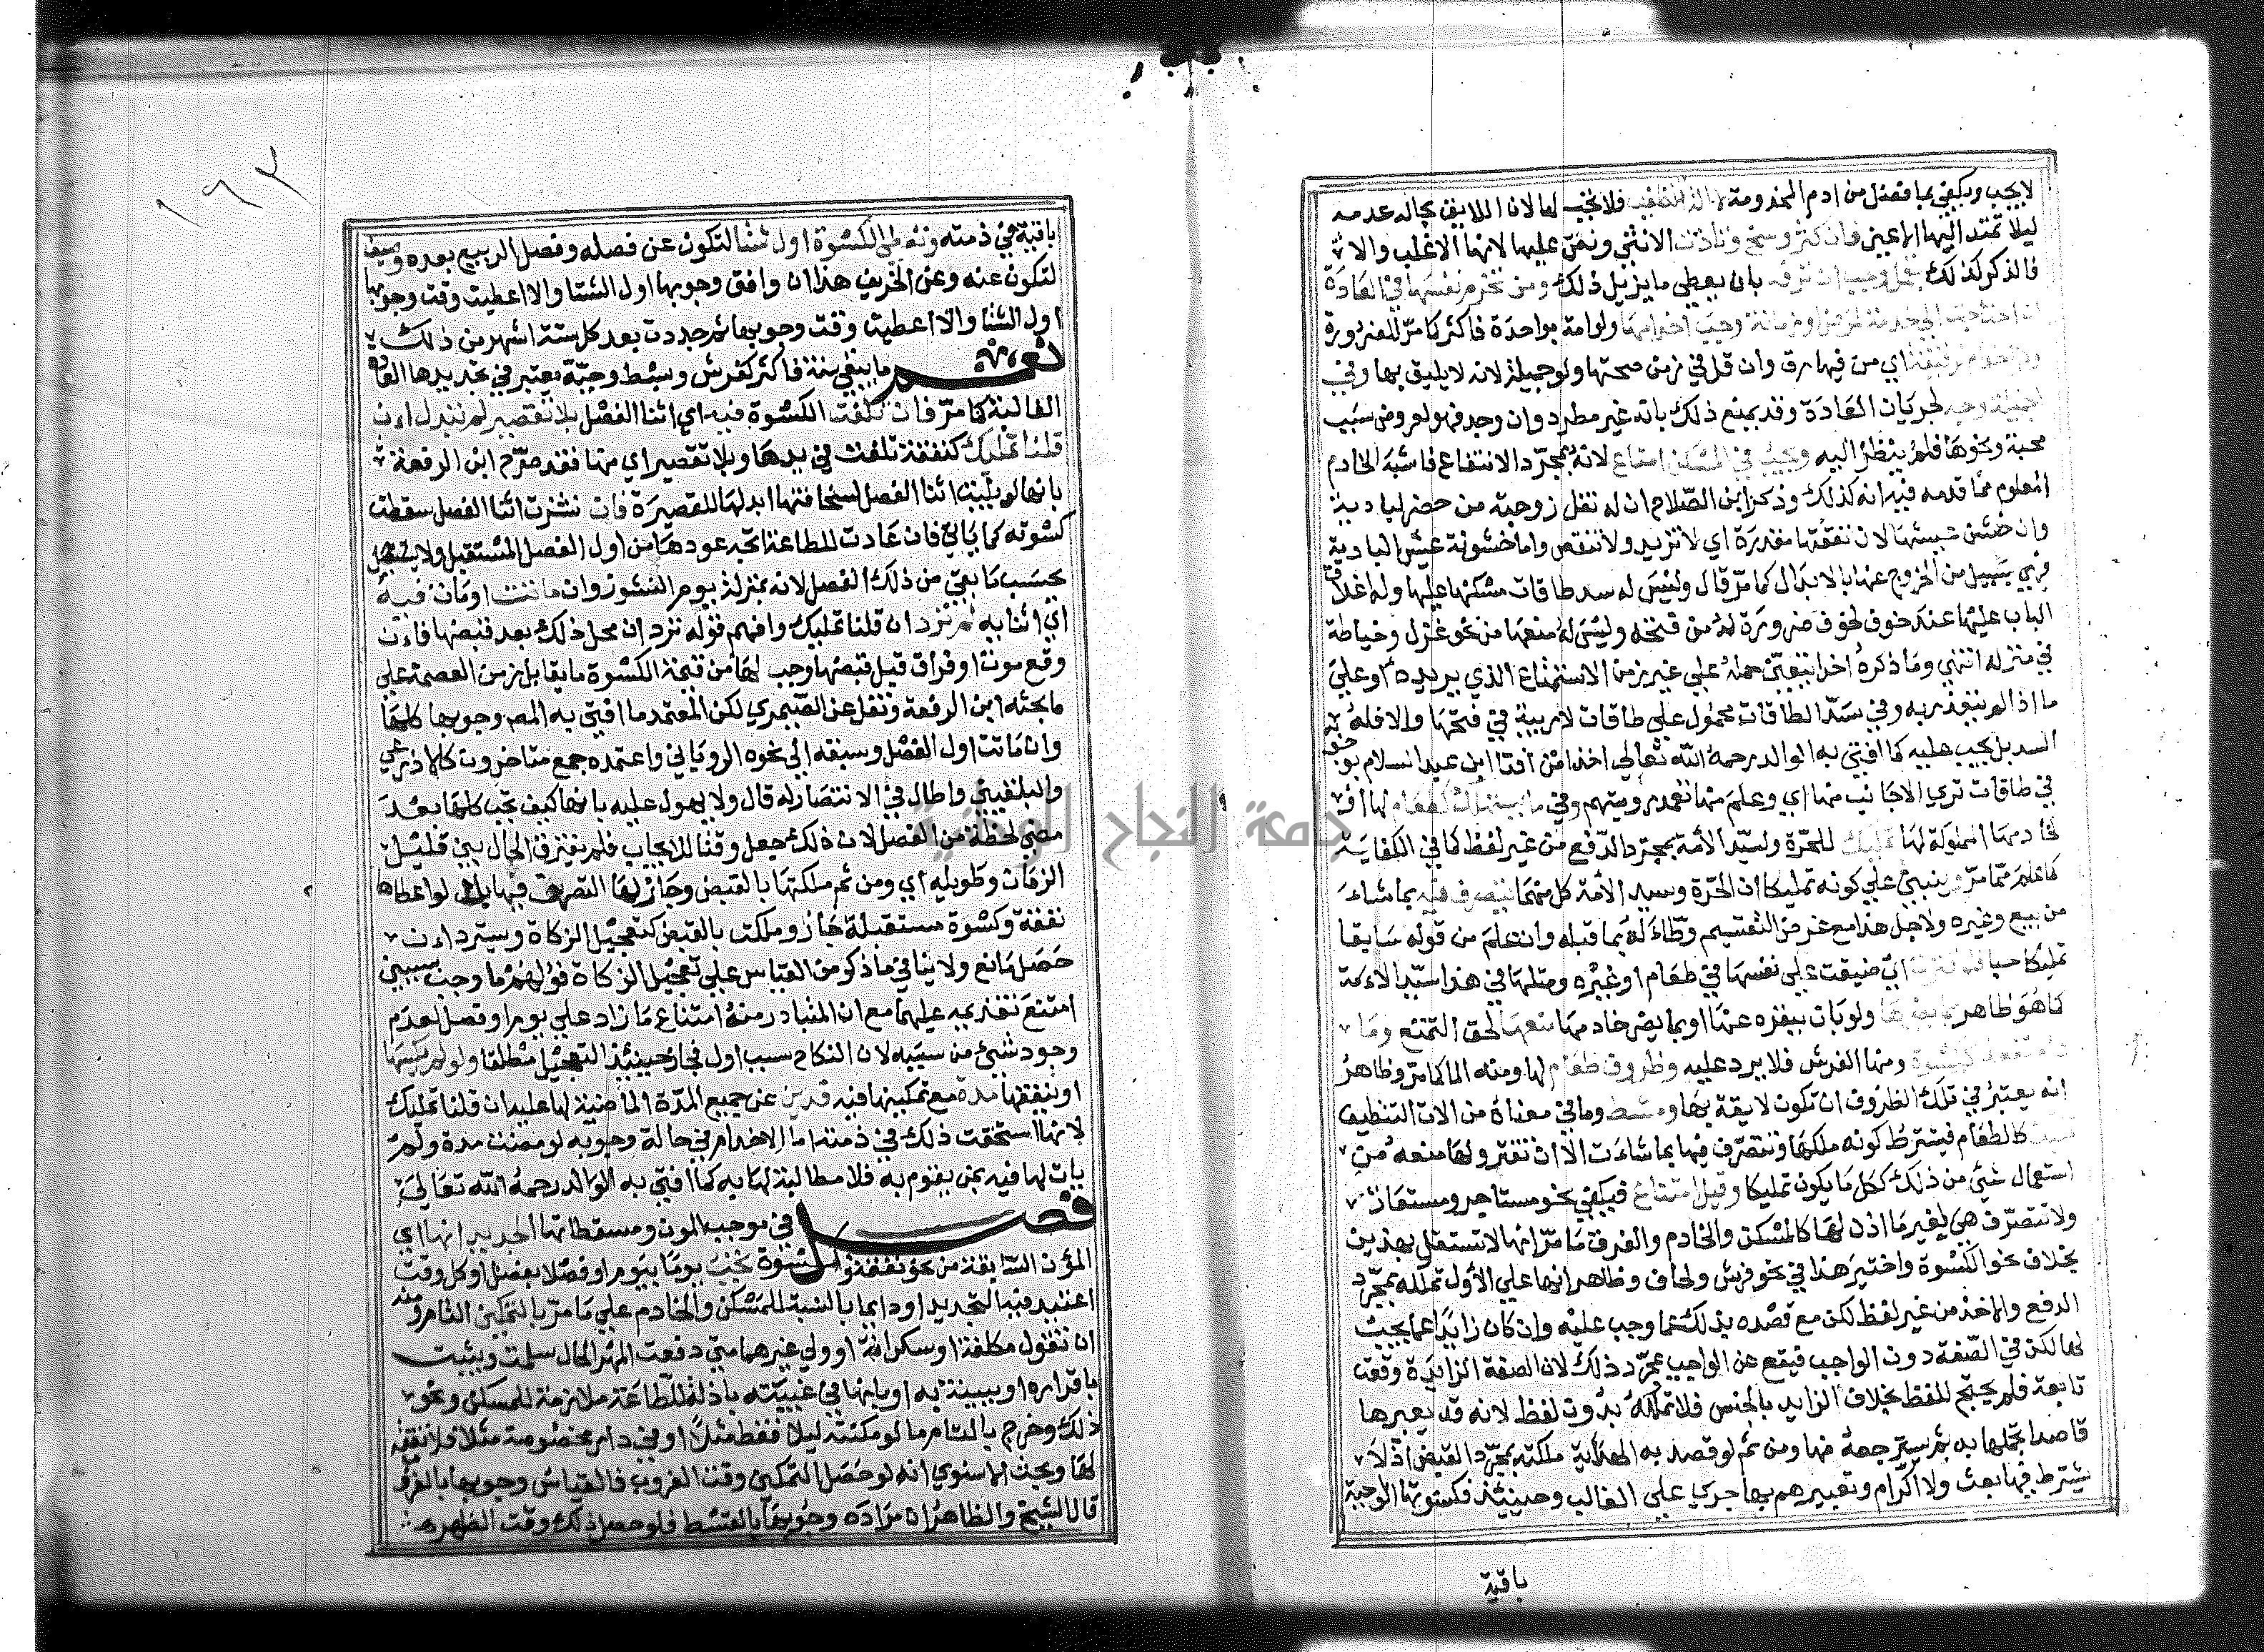 لا يجب ويكتفي بما فضل من ادم المخدومة فلا تجب لها لان اللايق بحاله عدمه
ليلا تمتد اليها الاعين فان كثر وسخ وتاذت الانثى ونص عليها لانها الاغلب والا
فالذكر كذلك بقمل وجب ان ترفه بان يعطي ما يزيل ذلك ومن تخدم نفسها في العادة
ان احتاجت الي خدمة لمرض او زمانة وجب اخدامها ولو امة بواحدة فاكثر كما مر للضرورة
ولا اخدام لرقيقة اي من فيها رق وان قل في زمن صحتها ولو جميلة لانه لا يليق بها وفي
الجميلة وجه لجريان العادة وقد يمنع ذلك بانه غير مطرد وان وجد فهو لعروض سبب
محبة ونحوها فلم ينظر اليه ويجب في المسكن امتاع لانه لمجرد الانتفاع فاشبه الخادم
المعلوم مما قدمه فيه انه كذلك وذكر ابن الصلاح ان له نقل زوجته من حضر لبادية
وان خشن عيشها لان نفقتها مقدرة اي لا تزيد ولا تنقص واما خشونة عيش البادية
فهي بسبيل من الخروج عنها بالابدال كما مر قال وليس له سد طاقات مسكنها عليها وله اغلاق
الباب عليها عند خوف لحوق ضرورة له من فتحه وليس له منعها من نحو غزل وخياطة
في منزله انتهي وما ذكره اخرا يتعين حمله علي غير زمن الاستمتاع الذي يريده او علي
ما اذا لم يتقذر به وفي سد الطاقات محمول علي طاقات لا ريبة في فتحها والا فله
السد بل يجب عليه كما افتي به الوالد رحمه الله تعالي اخذا من افتا ابن عبد السلام بوجوبه
في طاقات تري الاجانب منها اي وعلم منها تعمد رويتهم وفي ما يستهلك كطعام لها او
لخادمها المملوكة لها تمليك للحرة ولسيد الامة بمجرد الدفع من غير لفظ كما في الكفاية
كما علم مما مر وينبني علي كونه تمليكا ان الحرة وسيد الامة كل منهما يتصرف فيه بما شاء
من بيع وغيره ولاجل هذا مع غرض التقسيم وطاء له بما قبله وان علم من قوله سابقا
تمليكا حبا فلو قترت اي ضيقت علي نفسها في طعام او غيره ومثلها في هذا سيد الامة
كما هو ظاهر بما يضرها ولو بان ينفره عنها او بما يضر خادمها منعها لحق التمتع وما
دام نفعه ككسوة ومنها الفرش فلا يرد عليه وظروف طعام لها ومنه الما كما مر وظاهر
انه يعتبر في تلك الظروف ان تكون لايقة بها ومشط وما في معناه من الات التنظيف
تمليك كالطعام فيشترط كونه ملكها وتتصرف فيها بما شاءت الا ان تقتر ولها منعه من
استعمال شي من ذلك ككل ما يكون تمليكا وقيل امتاع فيكفي نحو مستاجر ومستعار
ولا تتصرف هي بغير ما اذن لها كالمسكن والخادم والفرق ما مر انها لا تستقل بهذين
بخلاف نحو الكسوة واختير هذا في نحو فرش ولحاف وظاهر انها علي الاول تملكه بمجرد
الدفع والاخذ من غير لفظ لكن مع قصده بذلك عما وجب عليه وان كان زايدا عما يجب
لها لكن في الصفة دون الواجب فيقع عن الواجب بمجرد ذلك لان الصفة الزايدة وقعت
تابعة فلم يحتج للفظ بخلاف الزايد بالجنس فلا تملكه بدون لفظ لانه قد يعيرها
قاصدا تجملها به ثم يسترجعه منها ومن ثم لو قصد به الهداية ملكته بمجرد القبض اذ لا
يشترط فيها بعث ولا اكرام وتعبيرهم بها جري علي الغالب وحينئذ فكسوتها الواجبة
باقية
١٩٢
باقية في ذمته وتعطي الكسوة اول شتا لتكون عن فصله وفصل الربيع بعده وصيف
لتكون عنه وعن الخريف هذا ان وافق وجوبها اول الشتا والا اعطيت وقت وجوبها
اول الشتا والا اعطيت وقت وجوبها ثم جددت بعد كل ستة اشهر من ذلك
نعم ما يبقي سنة فاكثر كفرش وبسط وجبة يعتبر في تجديدها العادة
الغالبة كما مر فان تلفت الكسوة فيه اي اثنا الفصل بلا تقصير لم تبدل ان
قلنا تمليك كنفقة تلفت في يدها وبلا تقصير اي منها فقد صرح ابن الرفعة
بانها لو بليت اثنا الفصل لسخافتها ابدلها لتقصيره فان نشزت اثنا الفصل سقطت
كسوته كما ياتي فان عادت للطاعة اتجه عودها من اول الفصل المستقبل ولا يحصل
بحسب ما بقي من ذلك الفصل لانه بمنزلة يوم النشوز وان ماتت او مات فيه
اي اثنايه لم ترد ان قلنا تمليك وافهم قوله ترد ان محل ذلك بعد قبضها فان
وقع موت او فراق قبل قبضها وجب لها من قيمة الكسوة ما يقابل زمن العصمة علي
ما بحثه ابن الرفعة ونقل عن الصيمري لكن المعتمد ما افتي به المص وجوبها كلها
وان ماتت اول الفصل وسبقه الي نحوه الروياني واعتمده جمع متاخرون كالاذرعي
والبلقيني واطال في الانتصار له قال ولا يهول عليه بانها كيف تجب كلها بعد
مضي لحظة من الفصل لان ذلك جعل وقتا للايجاب فلم يفترق الحال بين قليل
الزمان وطويله اي ومن ثم ملكتها بالقبض وجاز لها التصرف فيها بل لو اعطاها
نفقة وكسوة مستقبلة جاز وملكت بالقبض كتعجيل الزكاة ويسترد ان
حصل مانع ولا ينافي ما ذكر من القياس علي تعجيل الزكاة قولهم ما وجب بسببين
امتنع تقديمه عليهما مع ان المتبادر منه امتناع ما زاد علي يوم او فصل لعدم
وجود شي من سببه لان النكاح سبب اول فجاز حينئذ التعجيل مطلقا ولو لم يكسها
او ينفقها مدة مع تمكينها فيه فدين عن جميع المدة الماضية لها عليه ان قلنا تمليك
لانها استحقت ذلك في ذمته اما الاخدام في حالة وجوبه لو مضت مدة ولم
يات لها فيه بمن يقوم به فلا مطالبة لها به كما افتي به الوالد رحمه الله تعالي
فصل في موجب المون ومسقطاتها الجديد انها اي
المؤن السابقة من نحو نفقة وكسوة تجب يوما بيوم او فصلا بفصل او كل وقت
اعتيد فيه التجديد او دايما بالنسبة للمسكن والخادم علي ما مر بالتمكين التام ومنه
ان تقول مكلفة او سكرانة او ولي غيرهما متي دفعت المهر الحال سلمت ويثبت
باقراره او ببينة به او بانها في غيبته باذلة للطاعة ملازمة للمسكن ونحو
ذلك وخرج بالتام ما لو مكنته ليلا فقط مثلا او في دار مخصوصة مثلا فلا نفقة
لها وبحث الاسنوي انه لو حصل التمكين وقت الغروب فالقياس وجوبها بالغروب
قال الشيخ والظاهر ان مراده وجوبها بالقسط فلو حصل ذلك وقت الظهر
جامعة النجاح الوطنية